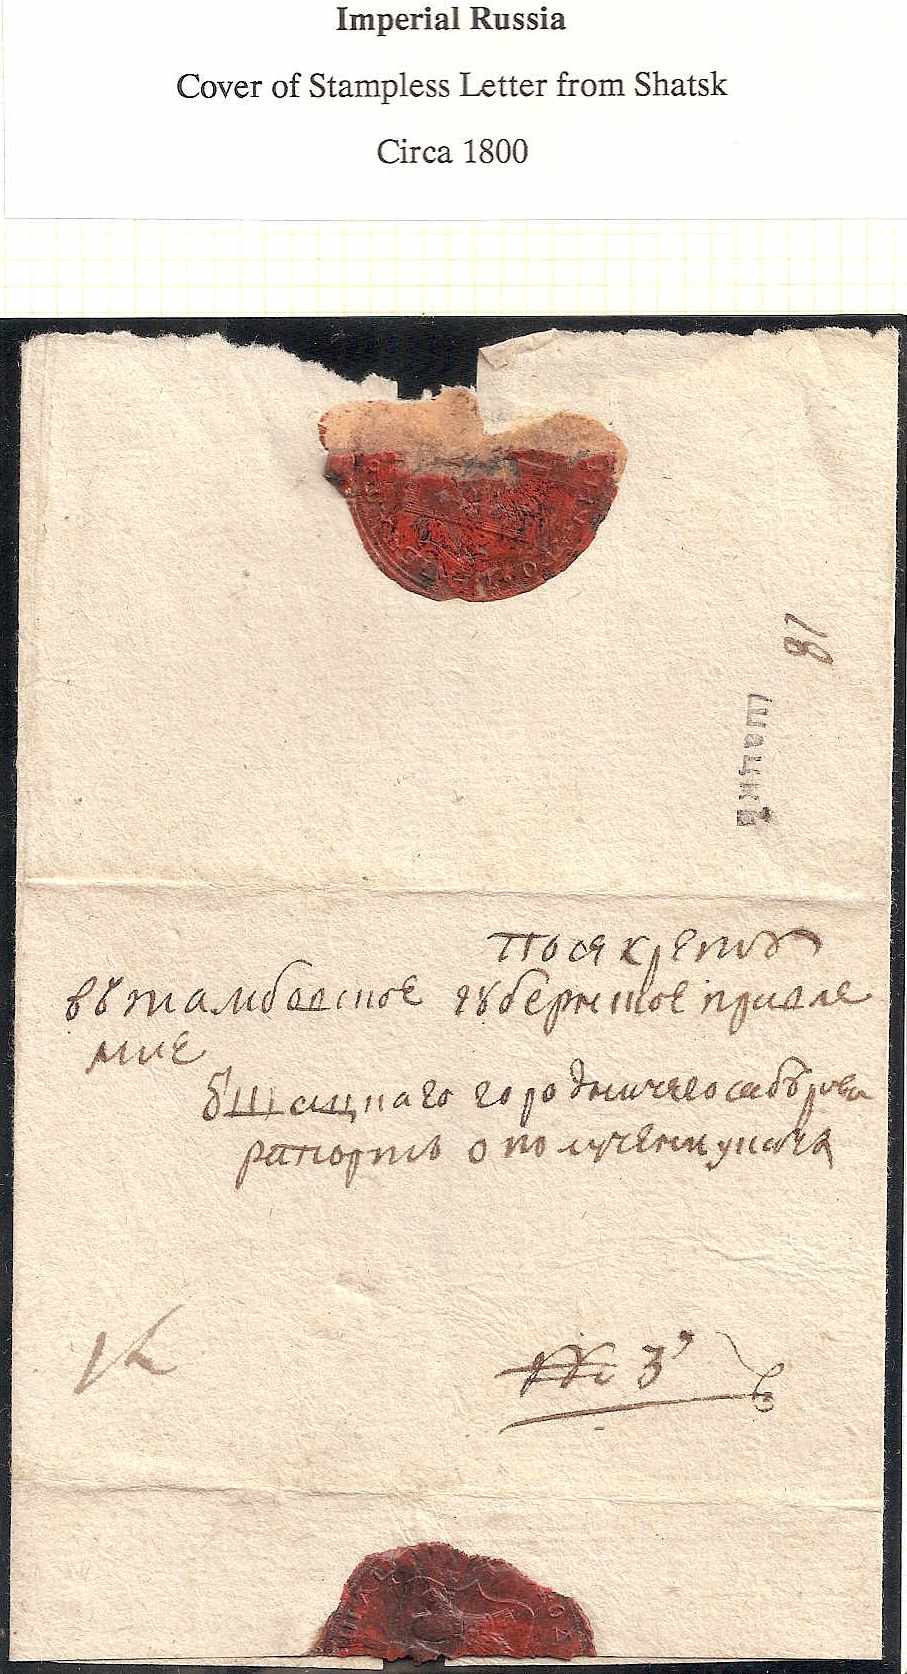 Imperial Russia
Cover of Stampless Letter from Shatsk
Circa 1800
81
шацкъ
По секрету
въ тамбовское губернское правле
ние
городничего
рапортъ о получени указа
№ 3